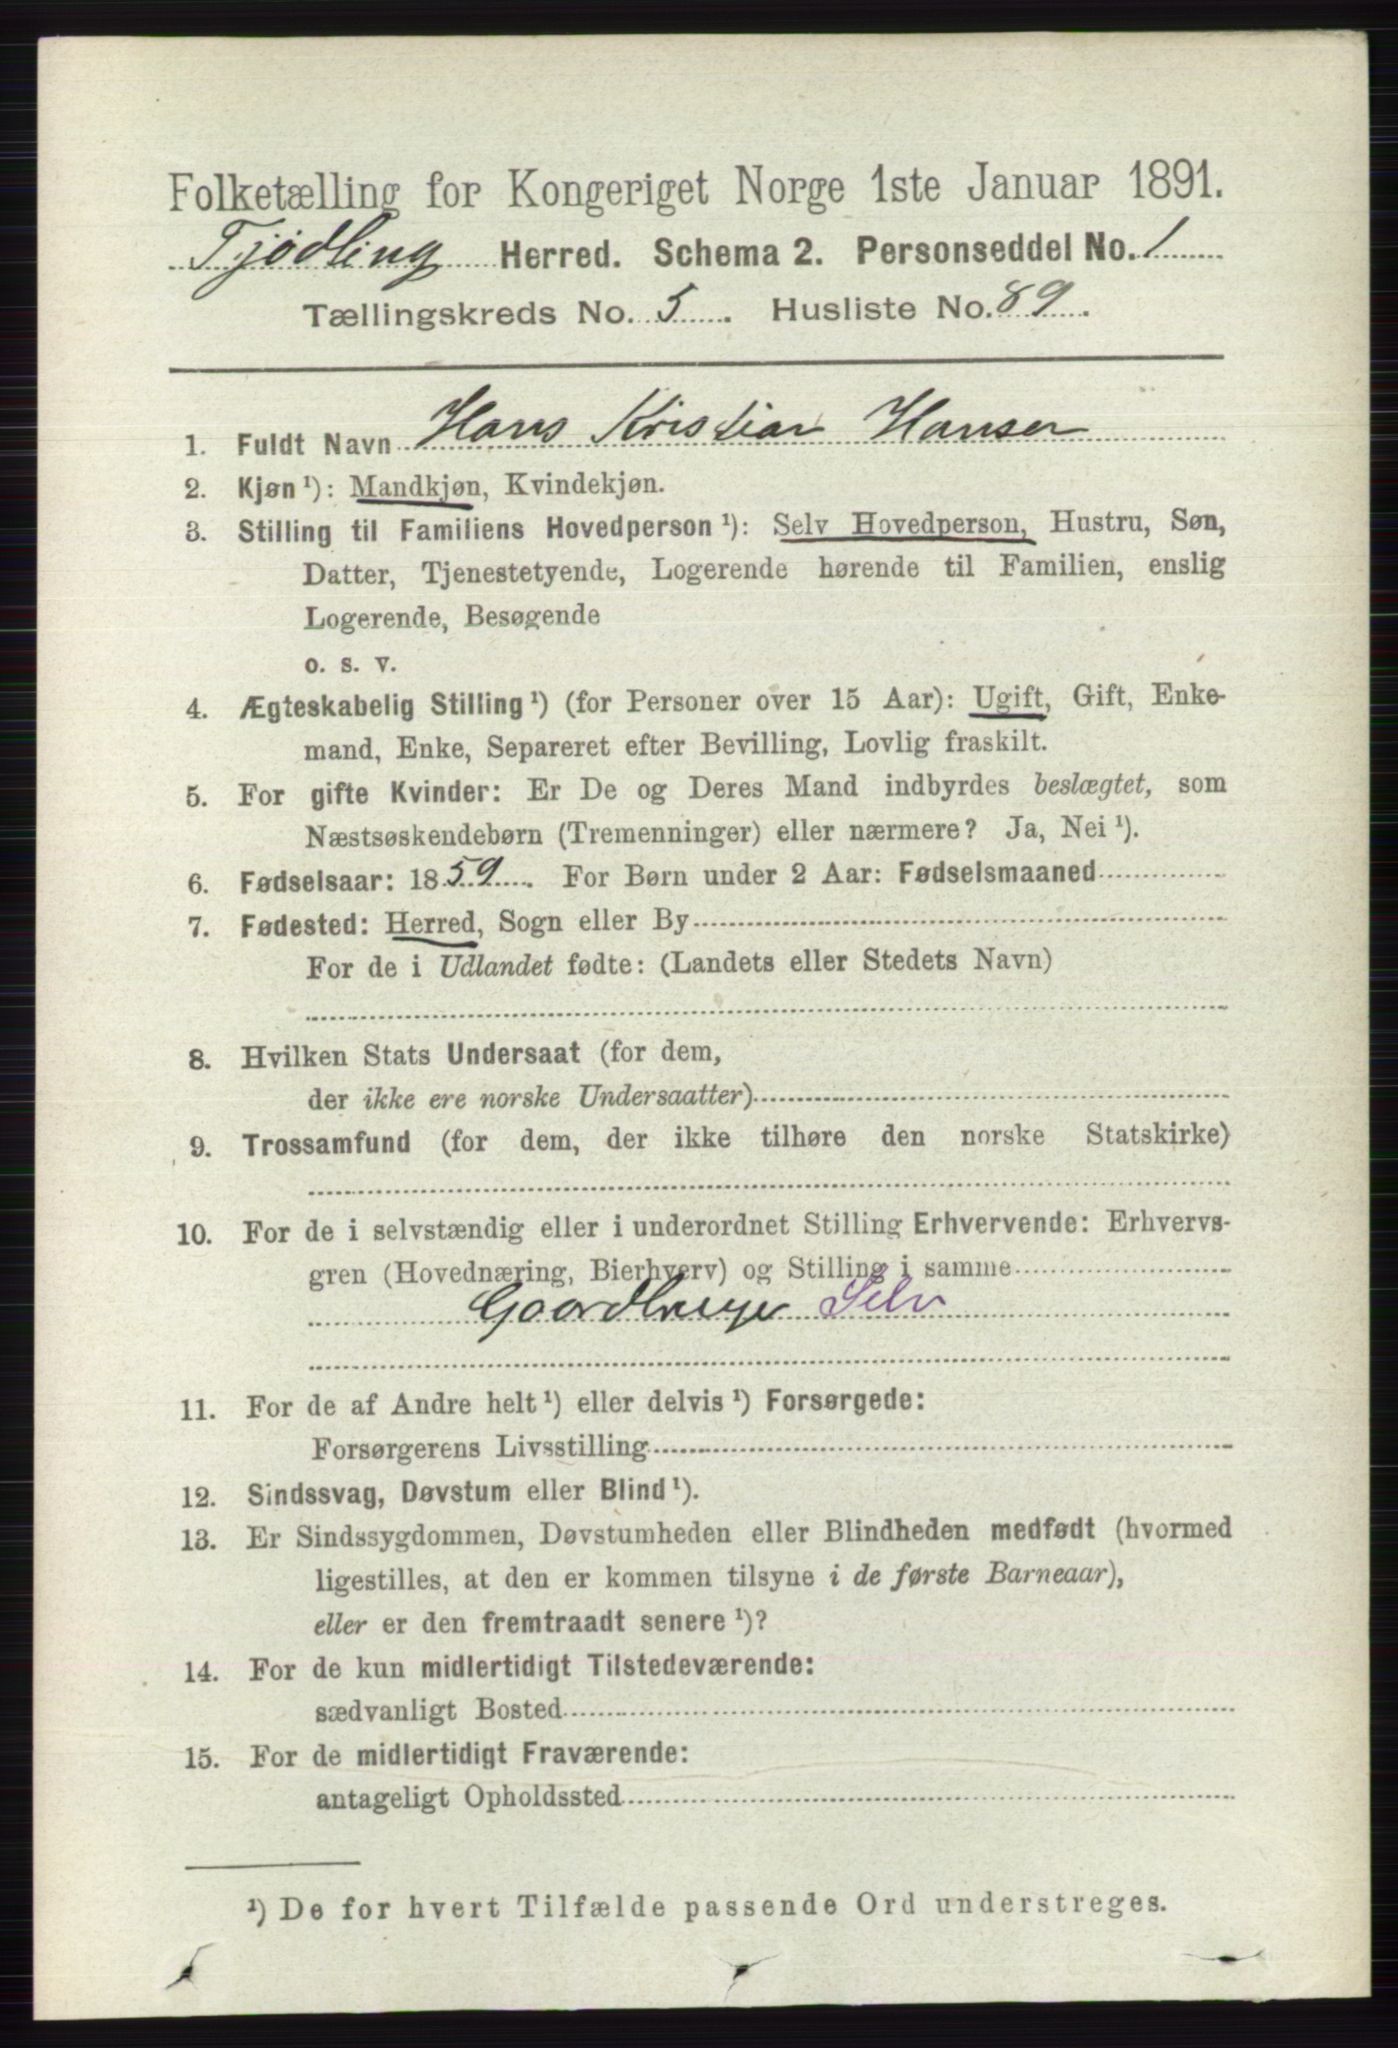 Folketælling for Kongeriget Norge 1ste Januar 1891.
Tjødling Herred. Schema 2. Personseddel No. 1
Tællingskreds No. 5. Husliste No. 89.
1. Fuldt Navn Hans Kristian Hansen
2. Kjøn ¹): Mandkjøn, Kvindekjøn.
3. Stilling til Familiens Hovedperson ¹): Selv Hovedperson, Hustru, Søn,
Datter, Tjenestetyende, Logerende hørende til Familien, enslig
Logerende, Besøgende
o. s. v.
4. Ægteskabelig Stilling ¹) (for Personer over 15 Aar): Ugift, Gift, Enke-
mand, Enke, Separeret efter Bevilling, Lovlig fraskilt.
5. For gifte Kvinder: Er De og Deres Mand indbyrdes beslægtet, som
Næstsøskendebørn (Tremenninger) eller nærmere? Ja, Nei ¹).
6. Fødselsaar: 1859. For Børn under 2 Aar: Fødselsmaaned
7. Fødested: Herred, Sogn eller By
For de i Udlandet fødte: (Landets eller Stedets Navn)
8. Hvilken Stats Undersaat (for dem,
der ikke ere norske Undersaatter)
9. Trossamfund (for dem, der ikke tilhøre den norske Statskirke)
10. For de i selvstændig eller i underordnet Stilling Erhvervende: Erhvervs-
gren (Hovednæring, Bierhverv) og Stilling i samme
Gaardbruger Selv
11. For de af Andre helt ¹) eller delvis ¹) Forsørgede:
Forsørgerens Livsstilling
12. Sindssvag, Døvstum eller Blind ¹).
13. Er Sindssygdommen, Døvstumheden eller Blindheden medfødt (hvormed
ligestilles, at den er kommen tilsyne i de første Barneaar),
eller er den fremtraadt senere ¹)?
14. For de kun midlertidigt Tilstedeværende:
sædvanligt Bosted
15. For de midlertidigt Fraværende:
antageligt Opholdssted
¹) De for hvert Tilfælde passende Ord understreges.